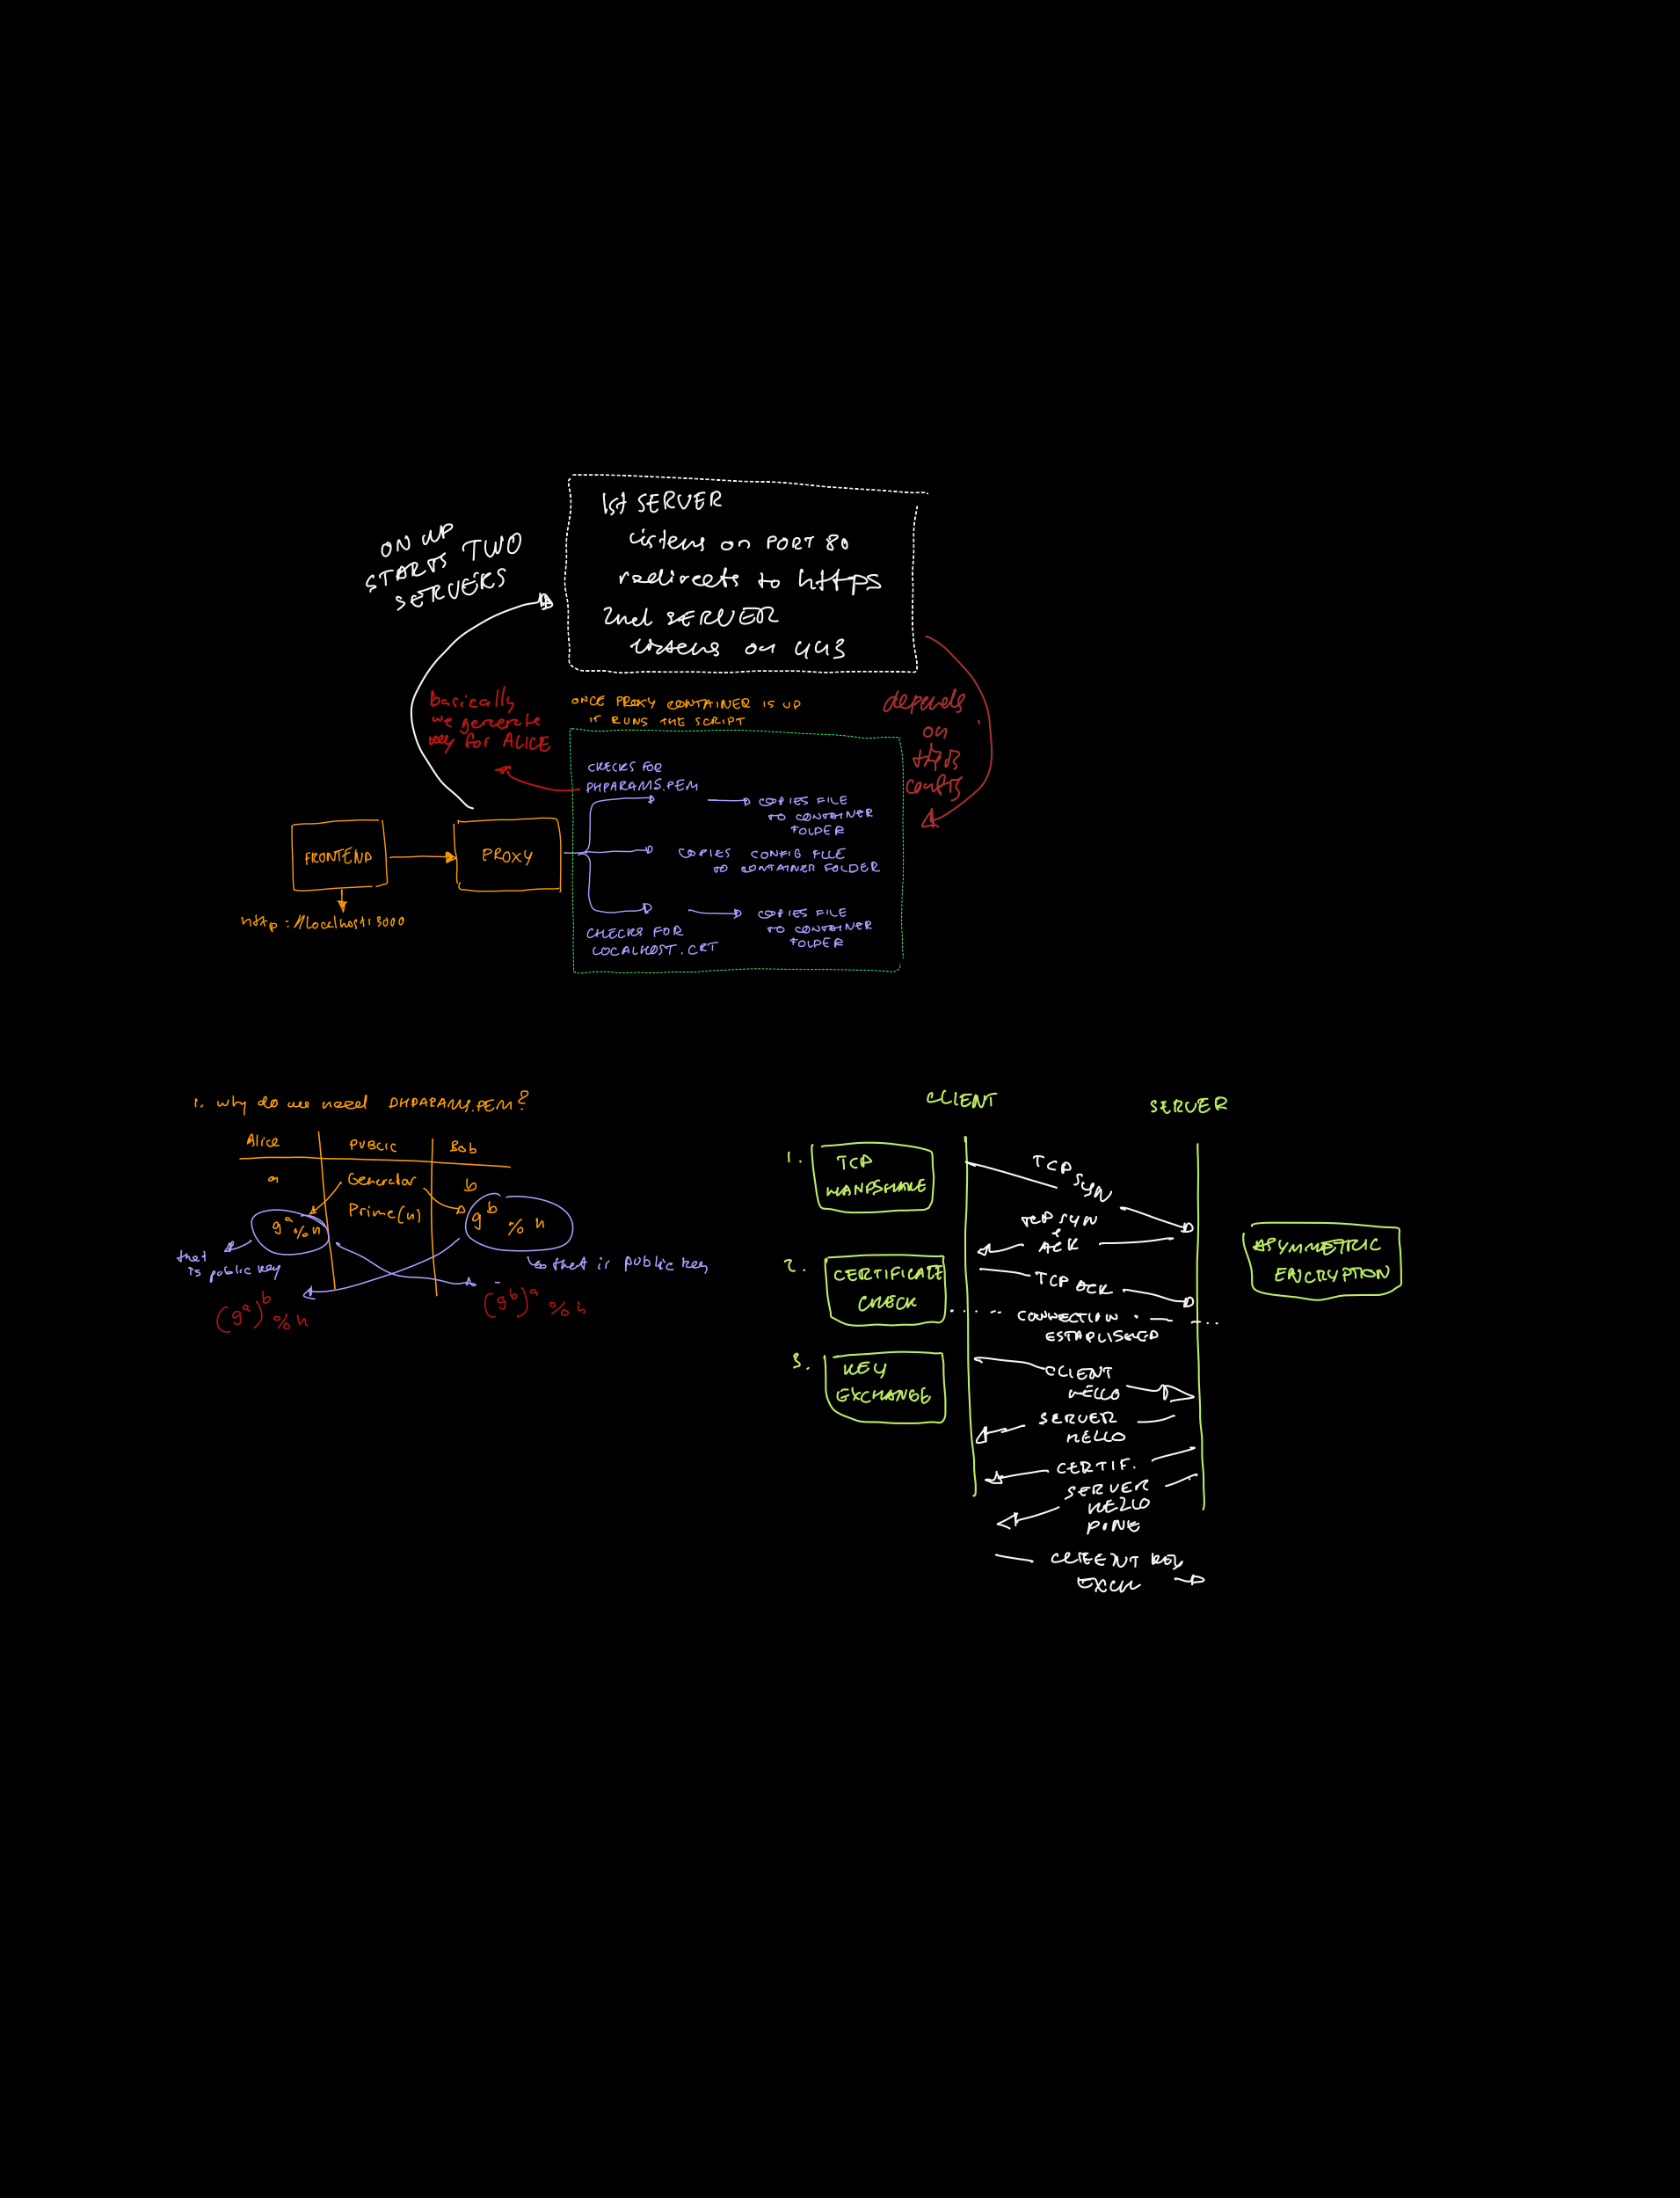 ON UP
STARTS TWO
SERVERS
1st SERVER
listens on PORT 80
redirects to https
2nd SERVER
listens on 443
basically
we generate
key for ALICE
ONCE PROXY CONTAINER IS UP
IT RUNS THE SCRIPT
depends
on
config
CHECKS FOR
DHPARAMS.PEM
COPIES FILE
TO CONTAINER
FOLDER
FRONTEND
PROXY
COPIES CONFIG FILE
TO CONTAINER FOLDER
http://localhost:3000
CHECKS FOR
LOCALHOST.CRT
COPIES FILE
TO CONTAINER
FOLDER
1. why do we need DHPARAMS.PEM?
Alice PUBLIC Bob
a Generator b
Prime(n)
g^a % n
g^b % n
that
is public key
that is public key
(g^a)^b % n
(g^b)^a % n
CLIENT SERVER
1. TCP
HANDSHAKE
2. CERTIFICATE
CHECK
3. KEY
EXCHANGE
TCP SYN
TCP SYN
&
ACK
TCP ACK
CONNECTION
ESTABLISHED
CLIENT
HELLO
SERVER
HELLO
CERTIF.
SERVER
HELLO
DONE
CLIEENT KEY
EXCH
ASYMMETRIC
ENCRYPTION